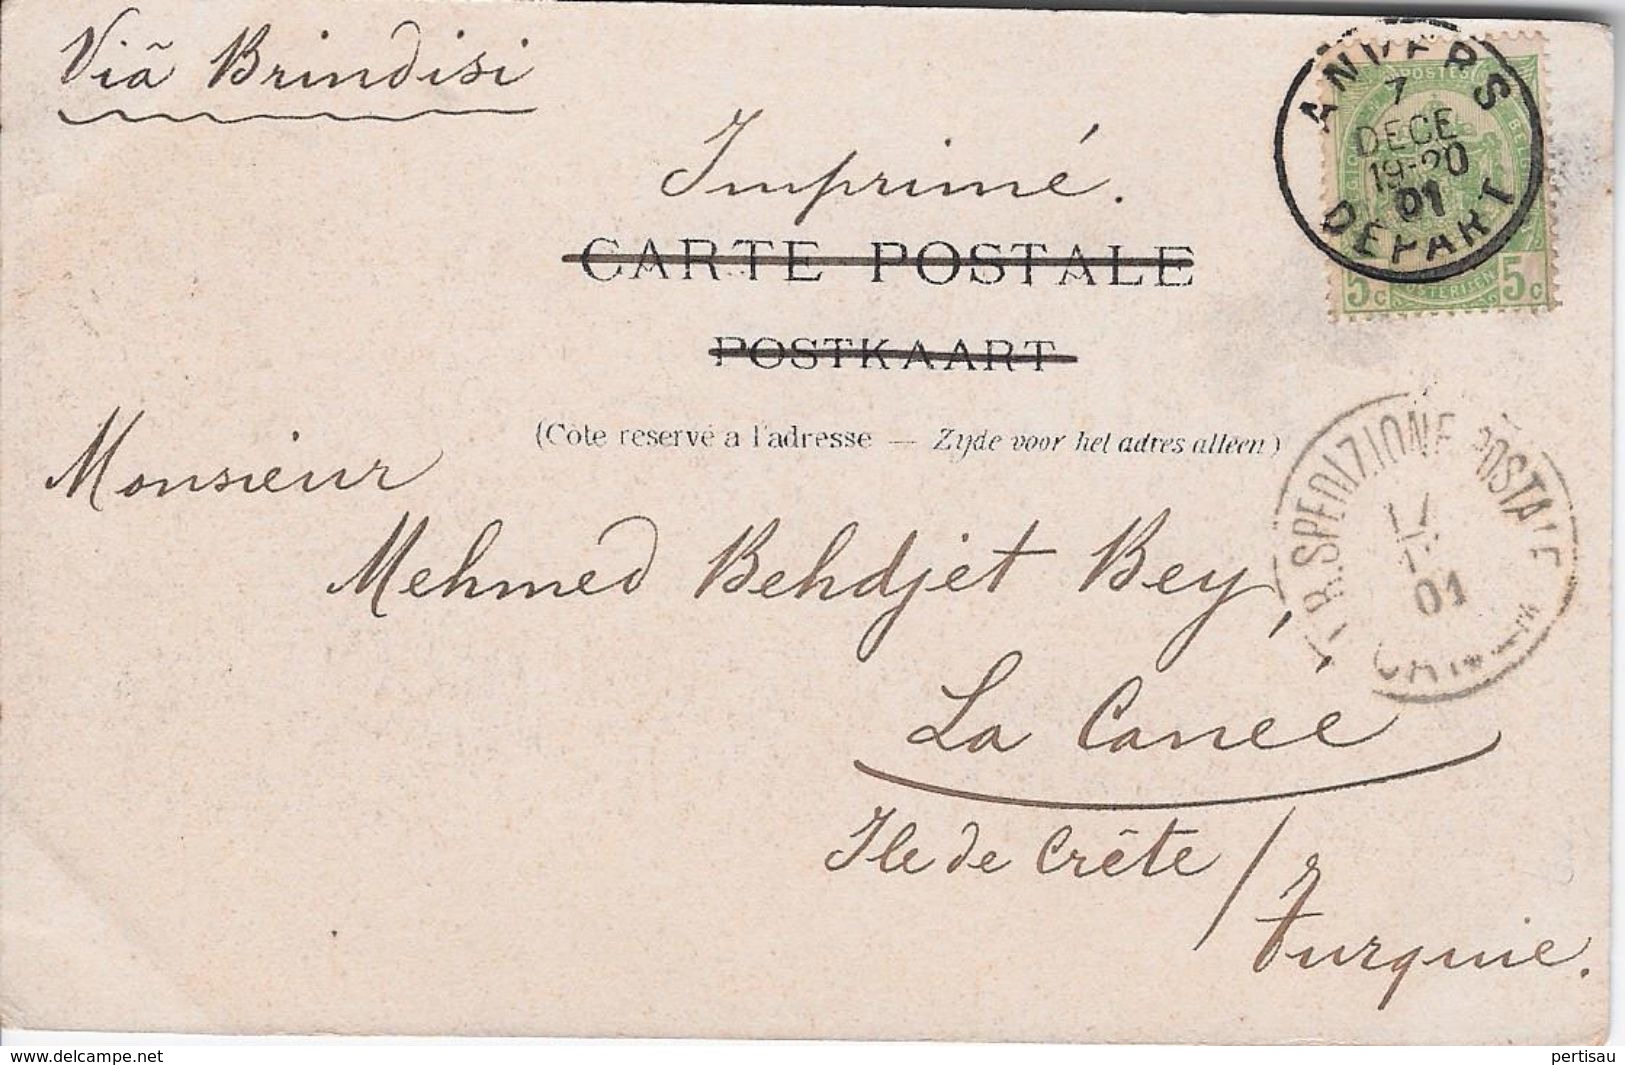 Viã Brindisi
Imprimé.
CARTE POSTALE
POSTKAART
(Côte reservé a l'adresse — Zijde voor het adres alleen)
ANVERS
7
DECE
19-20
01
DEPART
POSTES
5c 5c
Monsieur
Mehmed Behdjet Bey,
SPEDIZIONE POSTALE
01
La Canee
Ile de Crête / Turquie.
www.delcampe.net
pertisau